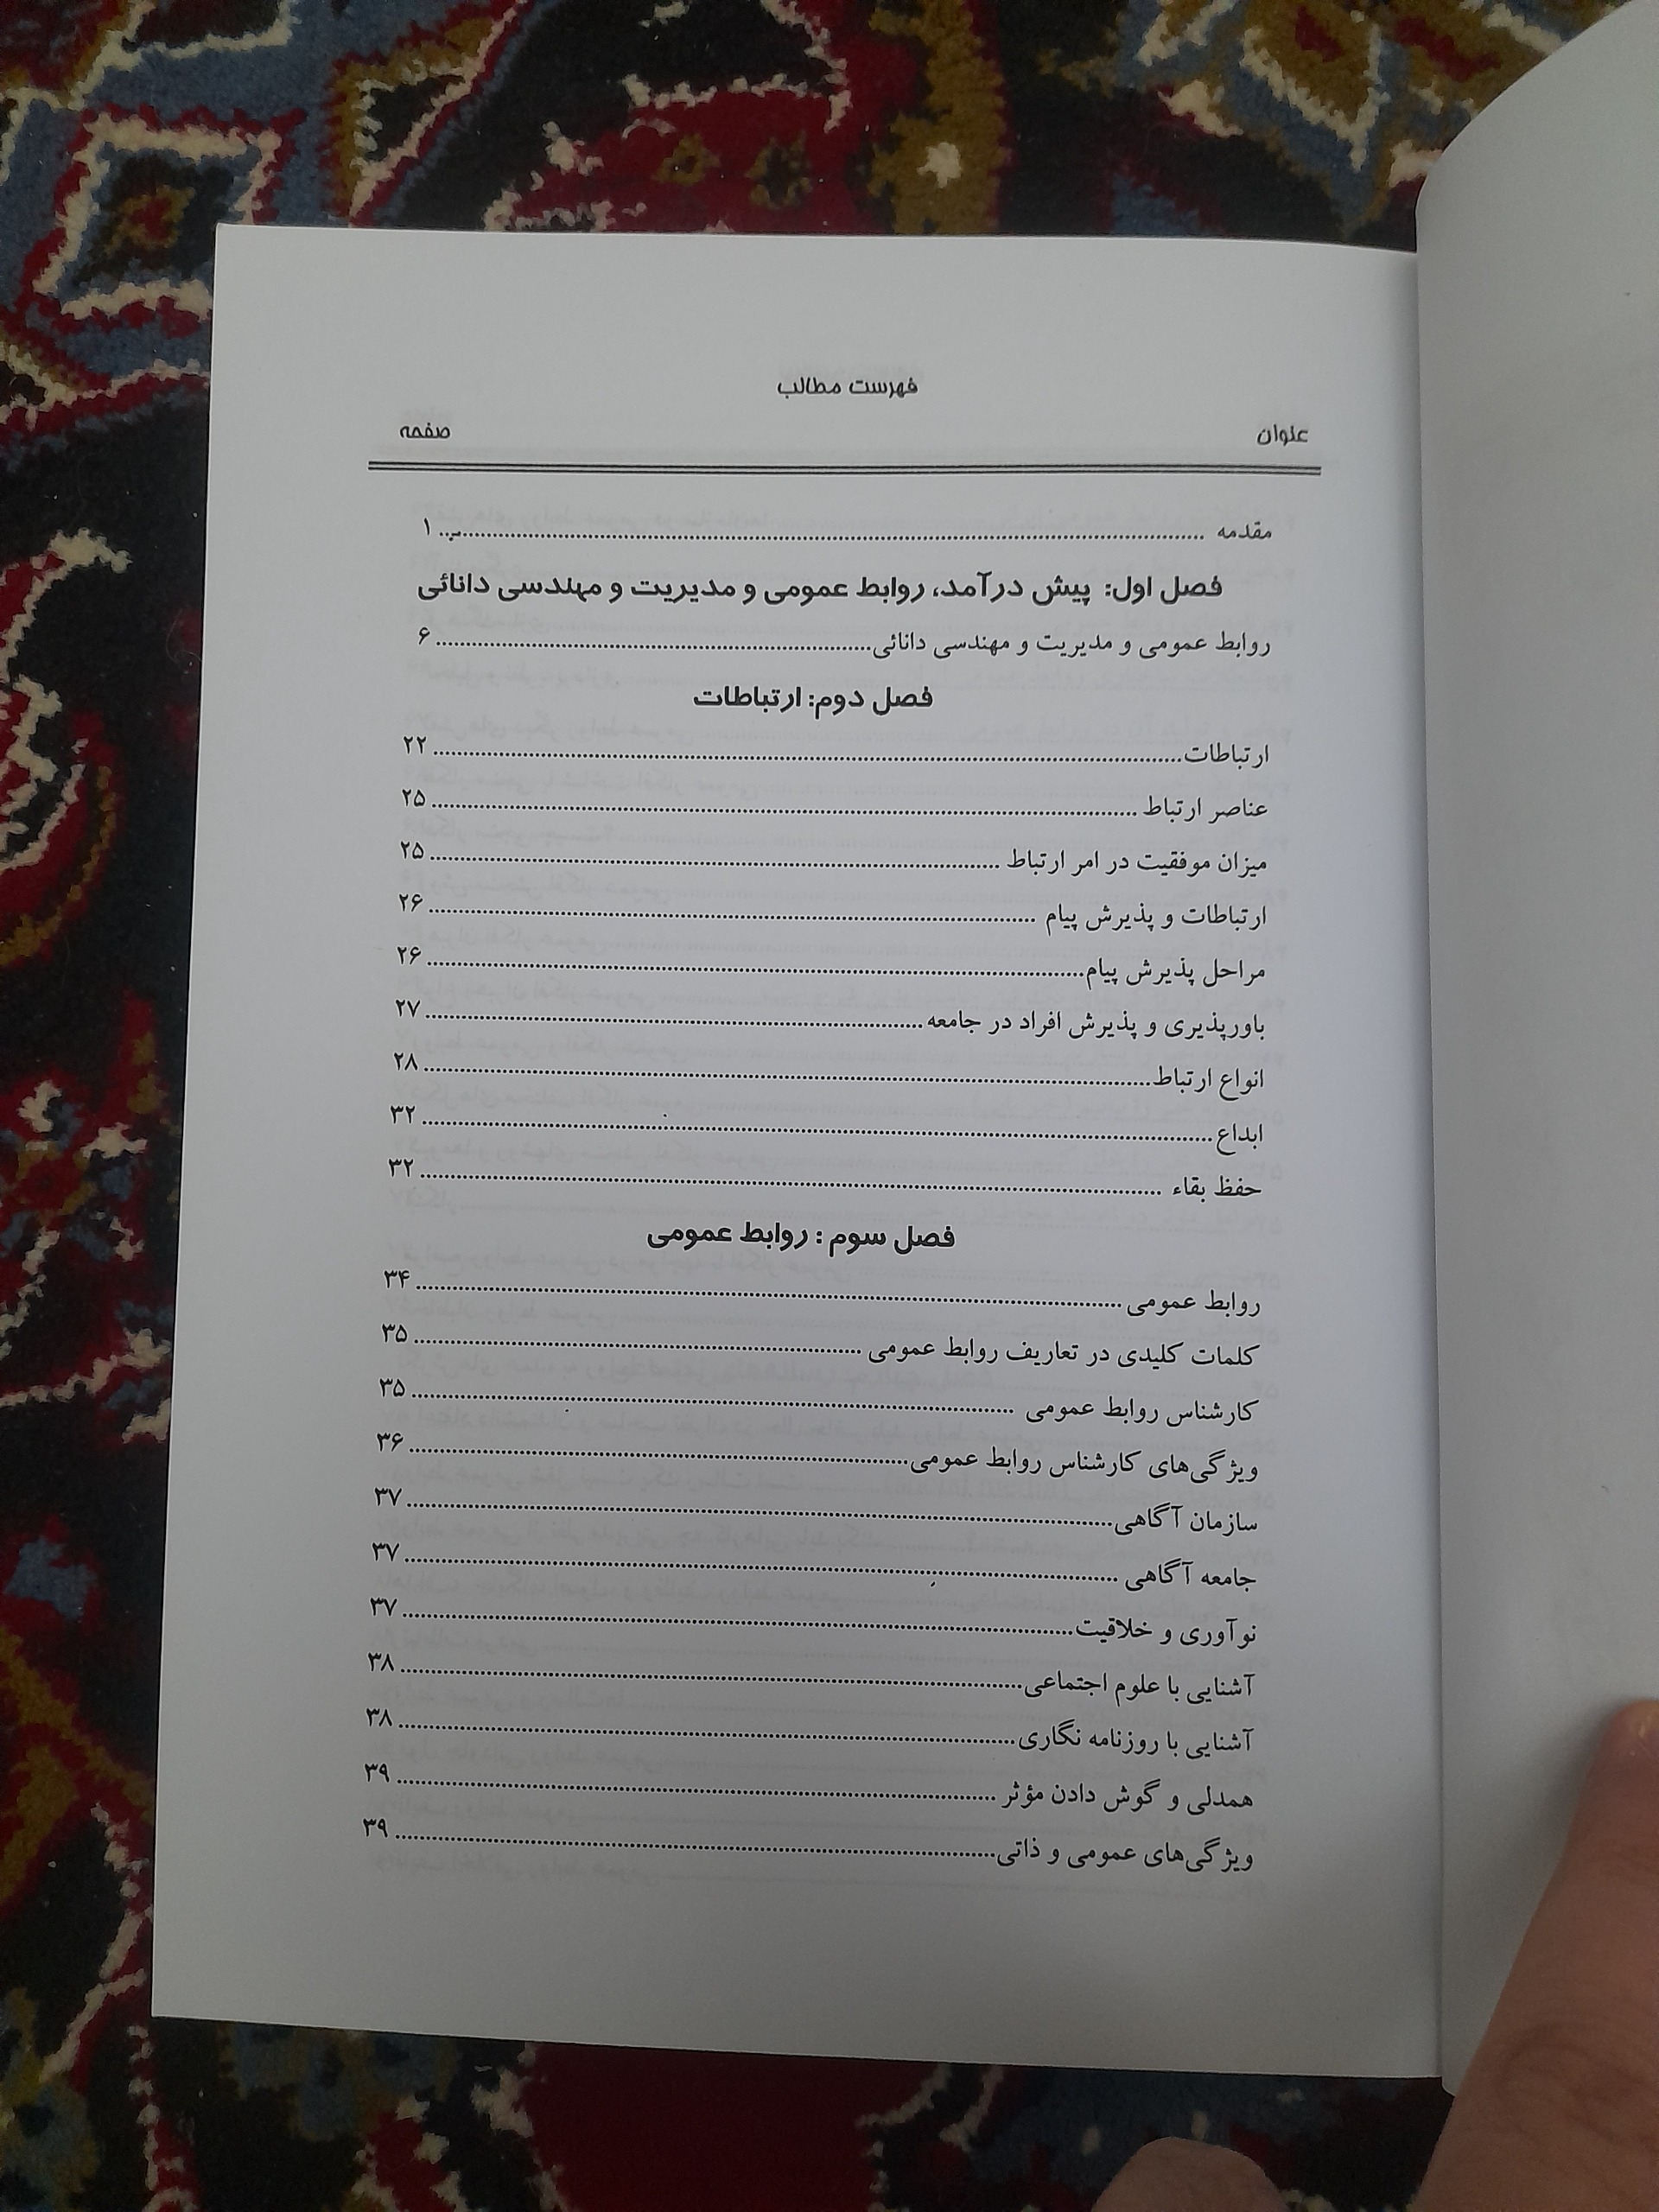 فهرست مطالب
عنوان صفحه
مقدمه ........ ۱
فصل اول: پیش درآمد، روابط عمومی و مدیریت و مهندسی دانائی
روابط عمومی و مدیریت و مهندسی دانائی ........ ۶
فصل دوم: ارتباطات
ارتباطات ........ ۲۲
عناصر ارتباط ........ ۲۵
میزان موفقیت در امر ارتباط ........ ۲۵
ارتباطات و پذیرش پیام ........ ۲۶
مراحل پذیرش پیام ........ ۲۶
باورپذیری و پذیرش افراد در جامعه ........ ۲۷
انواع ارتباط ........ ۲۸
ابداع ........ ۳۲
حفظ بقاء ........ ۳۲
فصل سوم : روابط عمومی
روابط عمومی ........ ۳۴
کلمات کلیدی در تعاریف روابط عمومی ........ ۳۵
کارشناس روابط عمومی ........ ۳۵
ویژگی‌های کارشناس روابط عمومی ........ ۳۶
سازمان آگاهی ........ ۳۷
جامعه آگاهی ........ ۳۷
نوآوری و خلاقیت ........ ۳۷
آشنایی با علوم اجتماعی ........ ۳۸
آشنایی با روزنامه نگاری ........ ۳۸
همدلی و گوش دادن مؤثر ........ ۳۹
ویژگی‌های عمومی و ذاتی ........ ۳۹